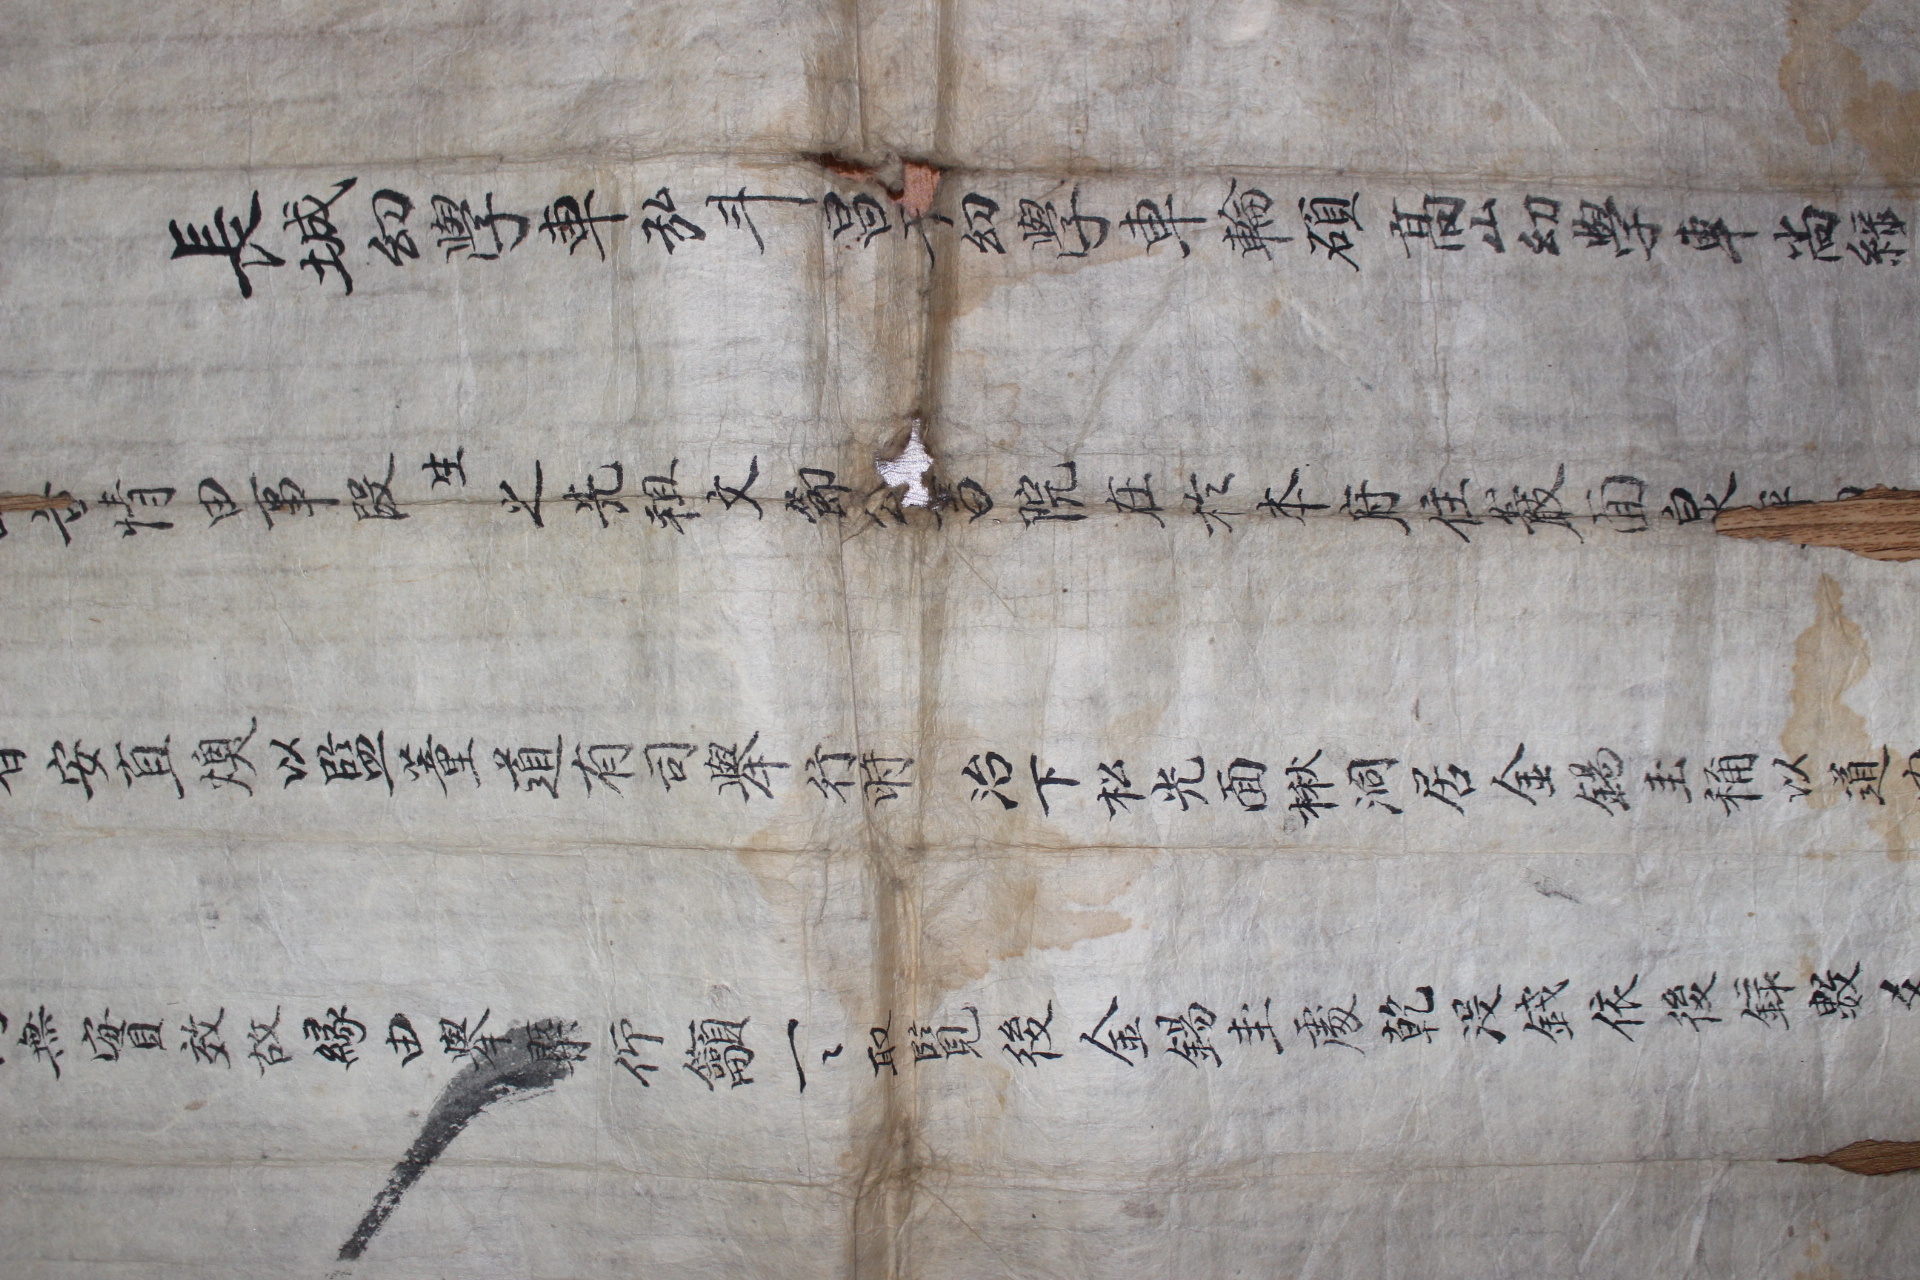 長城幼學車弘斗昌平幼學車輪碩高山幼學車尚緑
古情由事段生之先祖文節公書院在於本府住巖面泉坪
安直燠以監董道有司擧行時治下松光面楸洞居金錫圭稱以道內
無實效故緣由擧槩仰籲一〻取覽後金錫圭處乾沒錢依後錄數文